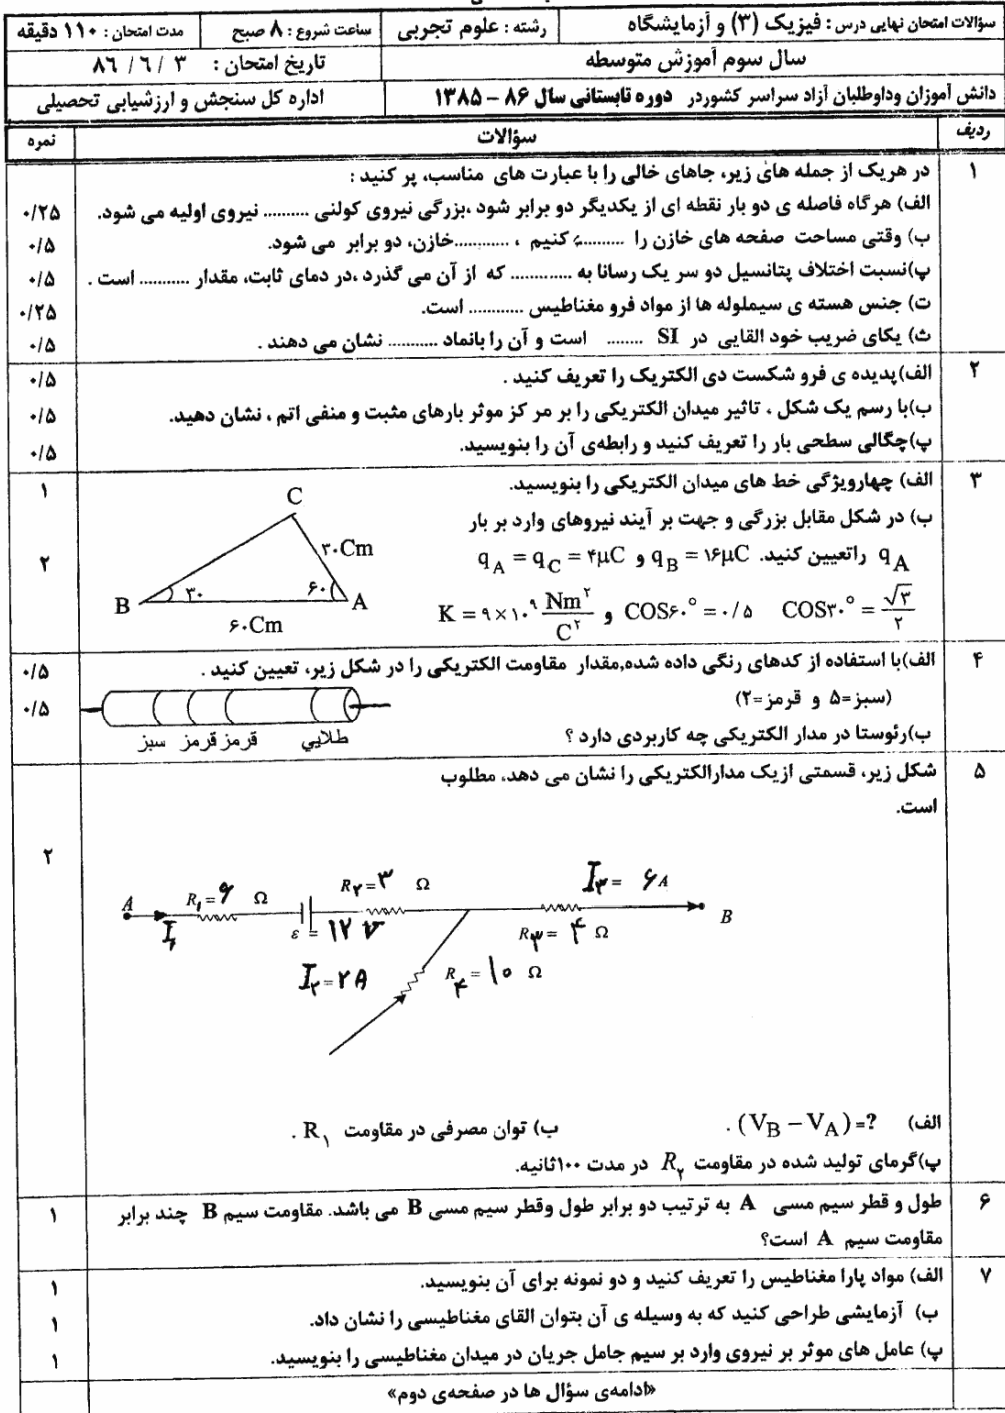 سؤالات امتحان نهایی درس : فیزیک (۳) و آزمایشگاه رشته : علوم تجربی ساعت شروع : ۸ صبح مدت امتحان : ۱۱۰ دقیقه
سال سوم آموزش متوسطه تاریخ امتحان : ۳ / ۶ / ۸۶
دانش آموزان وداوطلبان آزاد سراسر کشوردر دوره تابستانی سال ۸۶ – ۱۳۸۵ اداره کل سنجش و ارزشیابی تحصیلی
ردیف سؤالات نمره
۱ در هریک از جمله های زیر، جاهای خالی را با عبارت های مناسب، پر کنید :
الف) هرگاه فاصله ی دو بار نقطه ای از یکدیگر دو برابر شود ،بزرگی نیروی کولنی .......... نیروی اولیه می شود. ۰/۲۵
ب) وقتی مساحت صفحه های خازن را .......... کنیم ، ............خازن، دو برابر می شود. ۰/۵
پ)نسبت اختلاف پتانسیل دو سر یک رسانا به ............. که از آن می گذرد ،در دمای ثابت، مقدار ........... است . ۰/۵
ت) جنس هسته ی سیملوله ها از مواد فرو مغناطیس ............ است. ۰/۲۵
ث) یکای ضریب خود القایی در SI ........ است و آن را بانماد ........... نشان می دهند . ۰/۵
۲ الف)پدیده ی فرو شکست دی الکتریک را تعریف کنید . ۰/۵
ب)با رسم یک شکل ، تاثیر میدان الکتریکی را بر مر کز موثر بارهای مثبت و منفی اتم ، نشان دهید. ۰/۵
پ)چگالی سطحی بار را تعریف کنید و رابطه‌ی آن را بنویسید. ۰/۵
۳ الف) چهارویژگی خط های میدان الکتریکی را بنویسید. ۱
ب) در شکل مقابل بزرگی و جهت بر آیند نیروهای وارد بر بار ۲
q_A راتعیین کنید. q_B = ۱۶μC و q_A = q_C = ۴μC
K = ۹ × ۱۰^۹ Nm^۲/C^۲ و COS۶۰° = ۰/۵ COS۳۰° = √۳/۲
C
۳۰Cm
B ۳۰ ۶۰ A
۶۰Cm
۴ الف)با استفاده از کدهای رنگی داده شده,مقدار مقاومت الکتریکی را در شکل زیر، تعیین کنید . ۰/۵
(سبز=۵ و قرمز=۲) ۰/۵
ب)رئوستا در مدار الکتریکی چه کاربردی دارد ؟
سبز قرمز قرمز طلایی
۵ شکل زیر، قسمتی ازیک مدارالکتریکی را نشان می دهد، مطلوب
است. ۲
A R₁=۹ Ω R۲=۳ Ω I۳= ۶A B
I₁ ε = ۱۲ v R۳= ۴ Ω
I۲=۲A R۴= ۱۰ Ω
الف) (V_B – V_A) =? . ب) توان مصرفی در مقاومت R₁ .
پ)گرمای تولید شده در مقاومت R۲ در مدت ۱۰۰ثانیه.
۶ طول و قطر سیم مسی A به ترتیب دو برابر طول وقطر سیم مسی B می باشد. مقاومت سیم B چند برابر ۱
مقاومت سیم A است؟
۷ الف) مواد پارا مغناطیس را تعریف کنید و دو نمونه برای آن بنویسید. ۱
ب) آزمایشی طراحی کنید که به وسیله ی آن بتوان القای مغناطیسی را نشان داد. ۱
پ) عامل های موثر بر نیروی وارد بر سیم حامل جریان در میدان مغناطیسی را بنویسید. ۱
«ادامه‌ی سؤال ها در صفحه‌ی دوم»